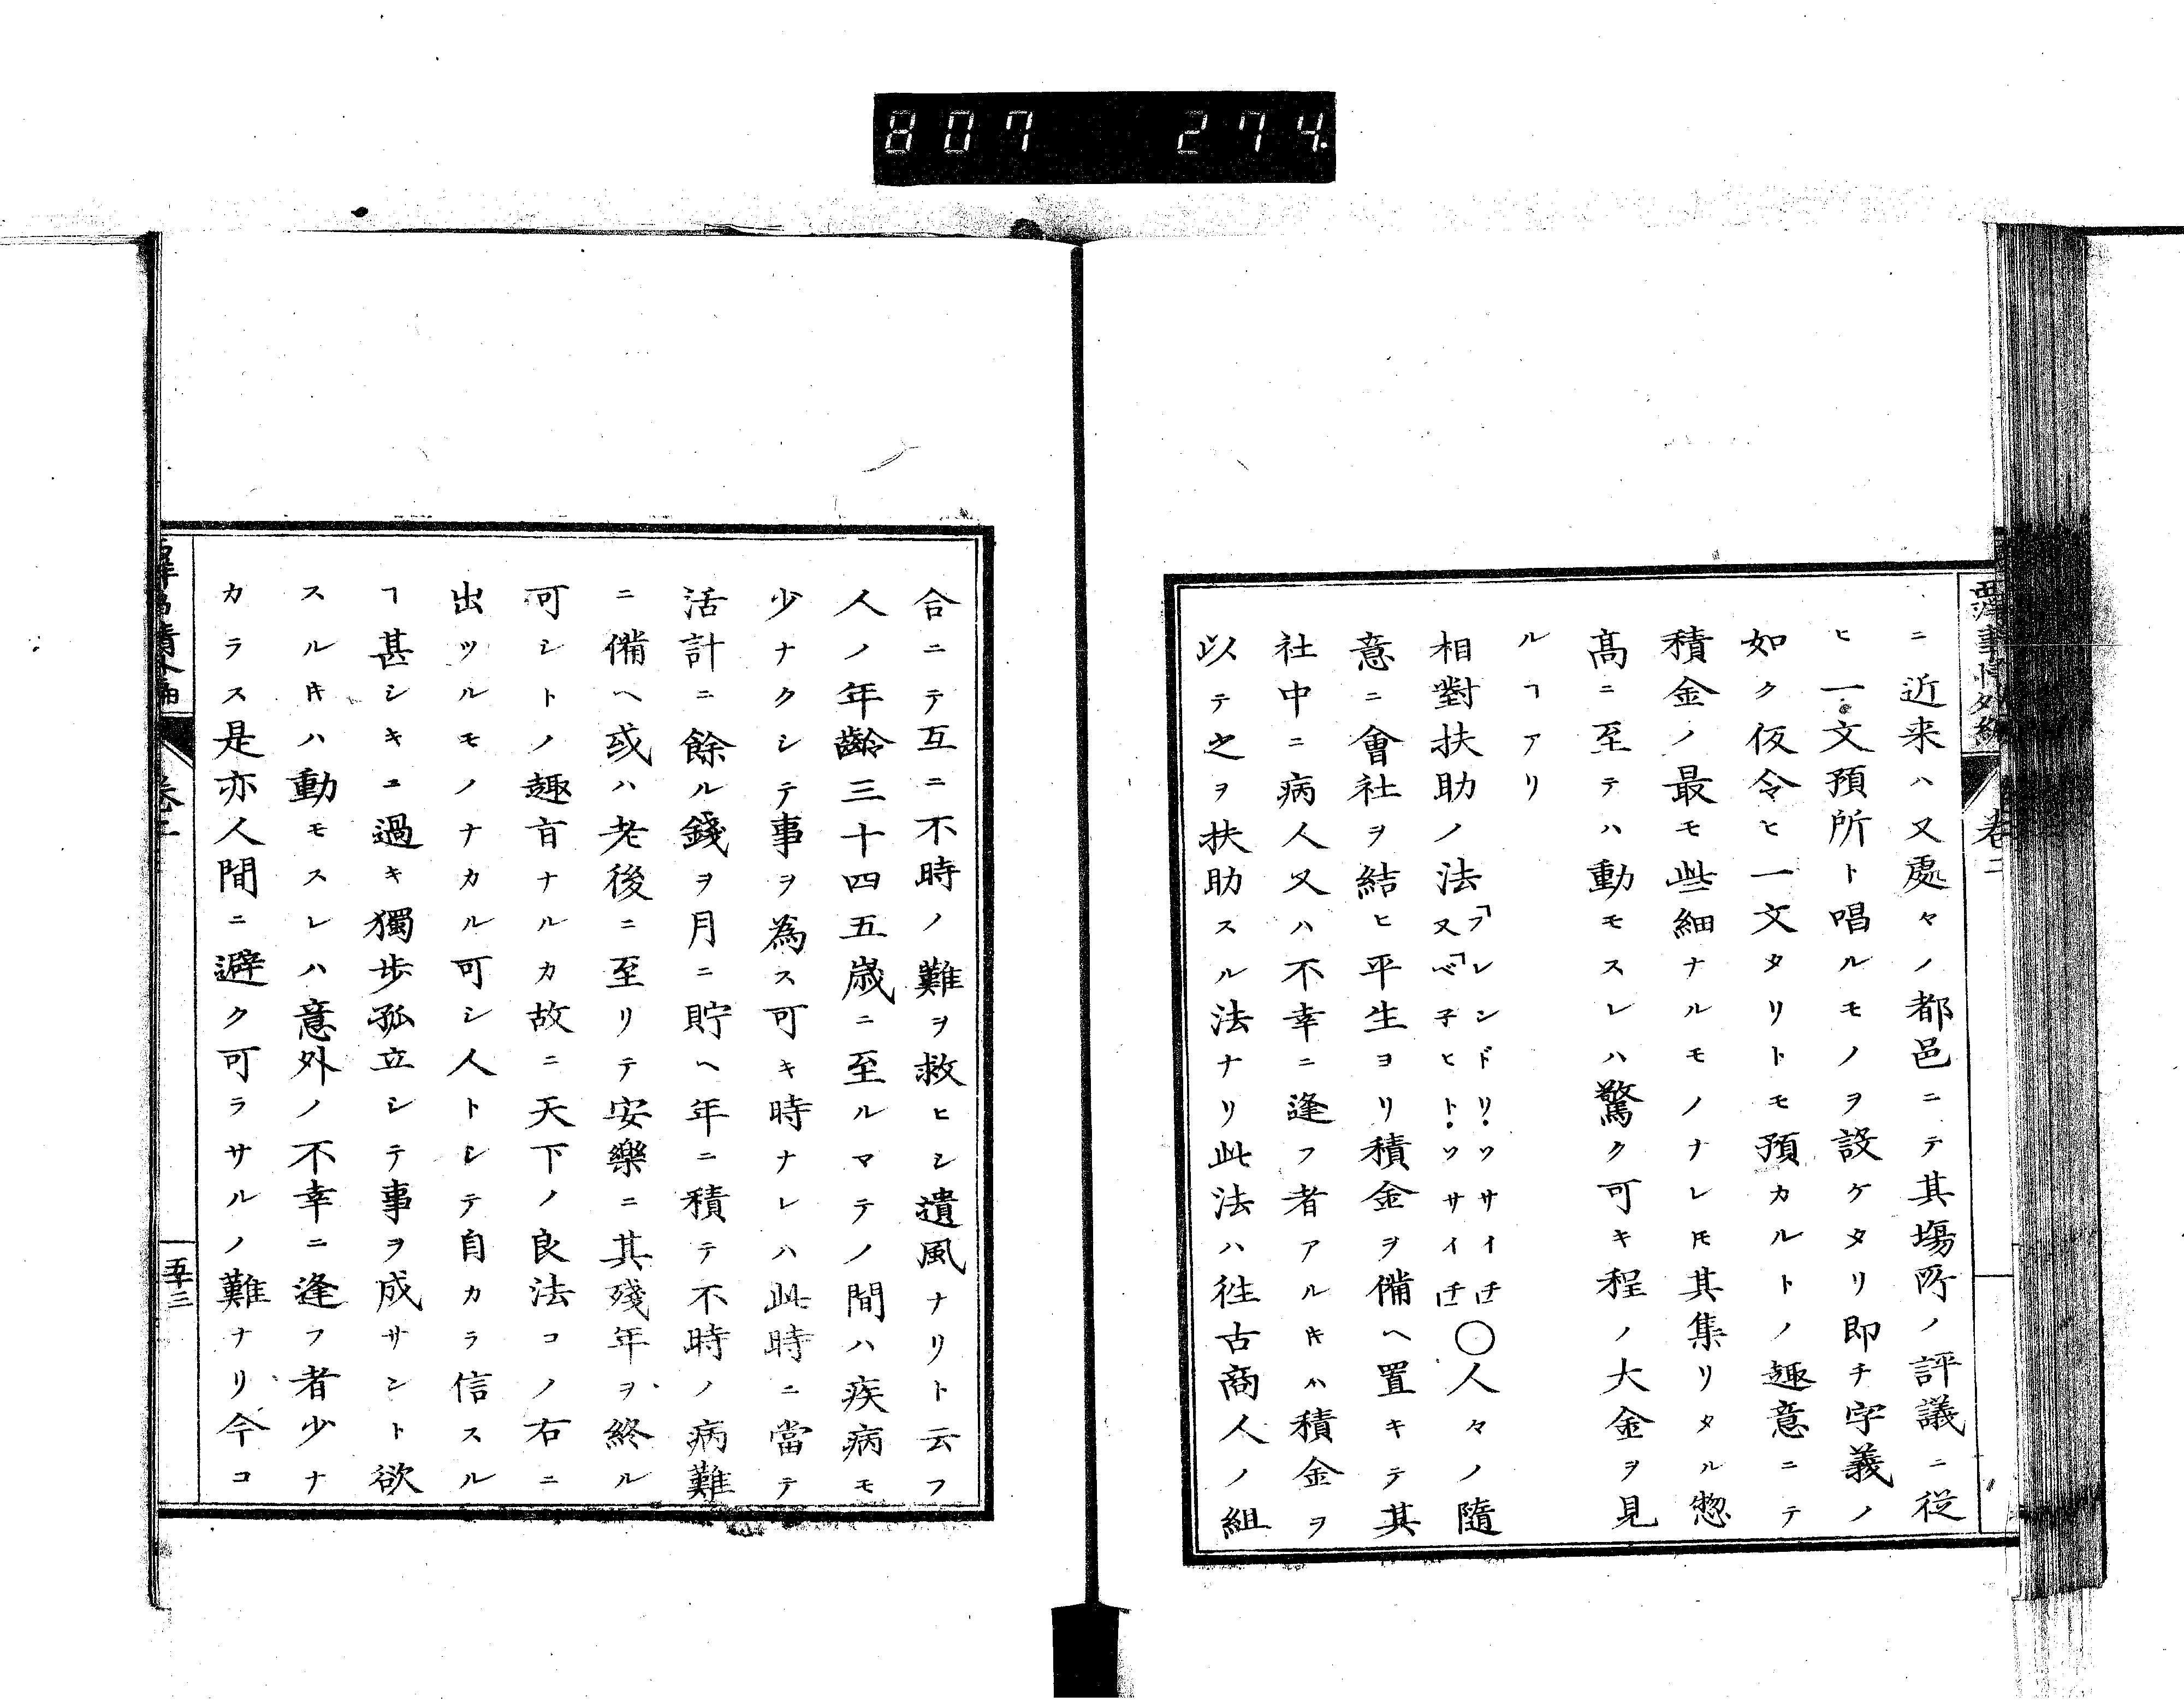 807 274.
西洋事情外編 卷二
ニ近来ハ又處々ノ都邑ニテ其塲所ノ評議ニ従
ヒ一文預所ト唱ルモノヲ設ケタリ即チ字義ノ
如ク仮令ヒ一文タリトモ預カルトノ趣意ニテ
積金ノ最モ些細ナルモノナレ𪜈其集リタル惣
高ニ至テハ動モスレハ驚ク可キ程ノ大金ヲ見
ルヿアリ
相對扶助ノ法「フレンドリ・ソサイチ」又「ベ子ヒト・ソサイチ」〇人々ノ隨
意ニ會社ヲ結ヒ平生ヨリ積金ヲ備ヘ置キテ其
社中ニ病人又ハ不幸ニ逢フ者アルキハ積金ヲ
以テ之ヲ扶助スル法ナリ此法ハ徃古商人ノ組
合ニテ互ニ不時ノ難ヲ救ヒシ遺風ナリト云フ
人ノ年齢三十四五歳ニ至ルマテノ間ハ疾病モ
少ナクシテ事ヲ為ス可キ時ナレハ此時ニ當テ
活計ニ餘ル錢ヲ月ニ貯ヘ年ニ積テ不時ノ病難
ニ備ヘ或ハ老後ニ至リテ安樂ニ其殘年ヲ終ル
可シトノ趣旨ナルカ故ニ天下ノ良法コノ右ニ
出ツルモノナカル可シ人トシテ自カラ信スル
ヿ甚シキニ過キ獨歩孤立シテ事ヲ成サント欲
スルキハ動モスレハ意外ノ不幸ニ逢フ者少ナ
カラス是亦人間ニ避ク可ラサルノ難ナリ今コ
五十三